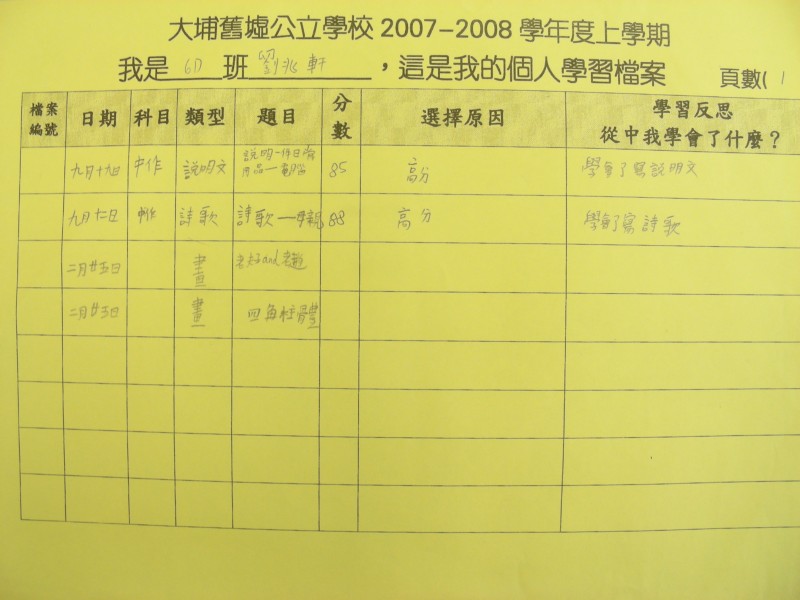 大埔舊墟公立學校 2007-2008 學年度上學期
我是 6D 班 劉兆軒，這是我的個人學習檔案 頁數( 1
檔案編號 日期 科目 類型 題目 分數 選擇原因 學習反思
從中我學會了什麼？
九月十九日 中作 說明文 說明一件日常用品—電腦 85 高分 學會了寫說明文
九月十二日 中作 詩歌 詩歌—母親 88 高分 學會了寫詩歌
二月廿五日 畫 and
二月廿五日 畫 四角柱體